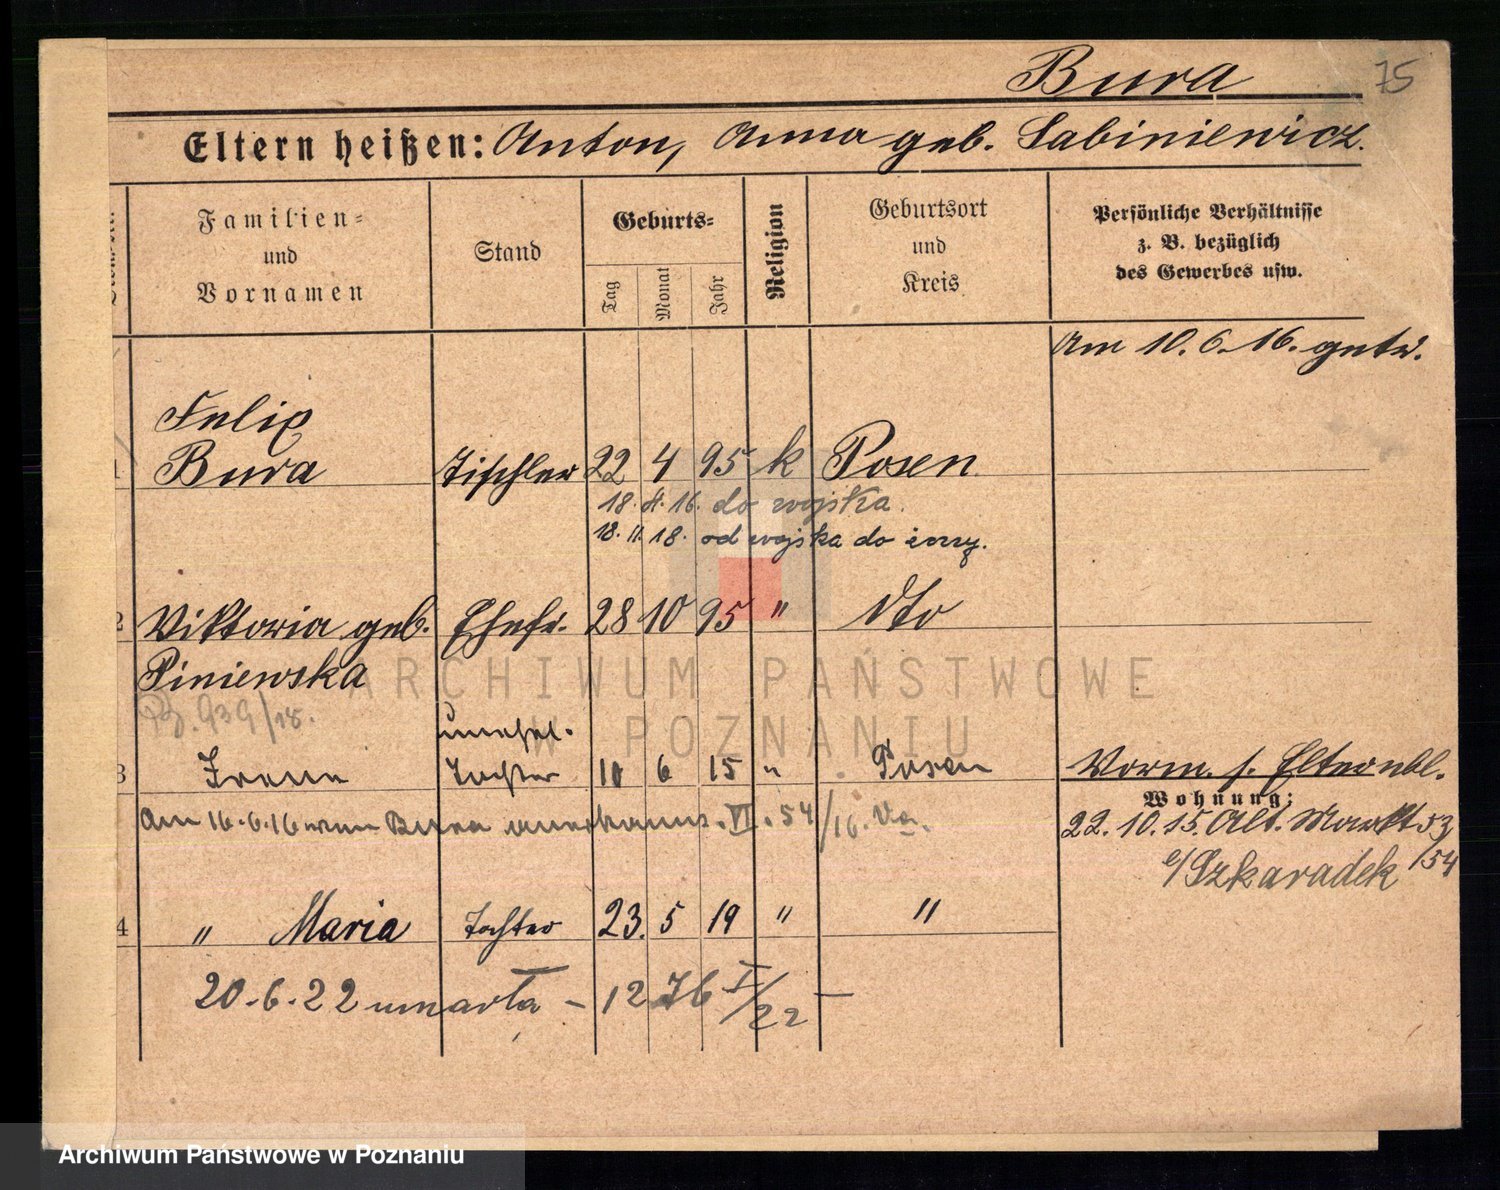 Bura 75
Eltern heißen: Anton, Anna geb. Sabiniewicz.
Familien= und Vornamen
Stand
Geburts=
Tag Monat Jahr
Religion
Geburtsort und Kreis
Persönliche Verhältnisse
z. B. bezüglich
des Gewerbes usw.
Am 10. 6. 16. getr.
Felix
1 Bura Tischler 22 4 95 k Posen
18. 4. 16. do wojska.
18. 11. 18. od wojska do żony.
2 Viktoria geb. Ehefr. 28 10 95 " dto
Piniewska
939/18.
unehel.
3 Irena Tochter 10 6 15 " Posen
Vorm. s. Elternbl.
Am 16. 6. 16 vom Bura anerkannt. VI. 54/16. Va.
Wohnung:
22. 10. 15. Alt. Markt 53/54
b/ Szkaradek
4 " Maria Tochter 23. 5 19 " "
20. 6. 22 umarła – 1276 I/22 –
ARCHIWUM PAŃSTWOWE
W POZNANIU
Archiwum Państwowe w Poznaniu